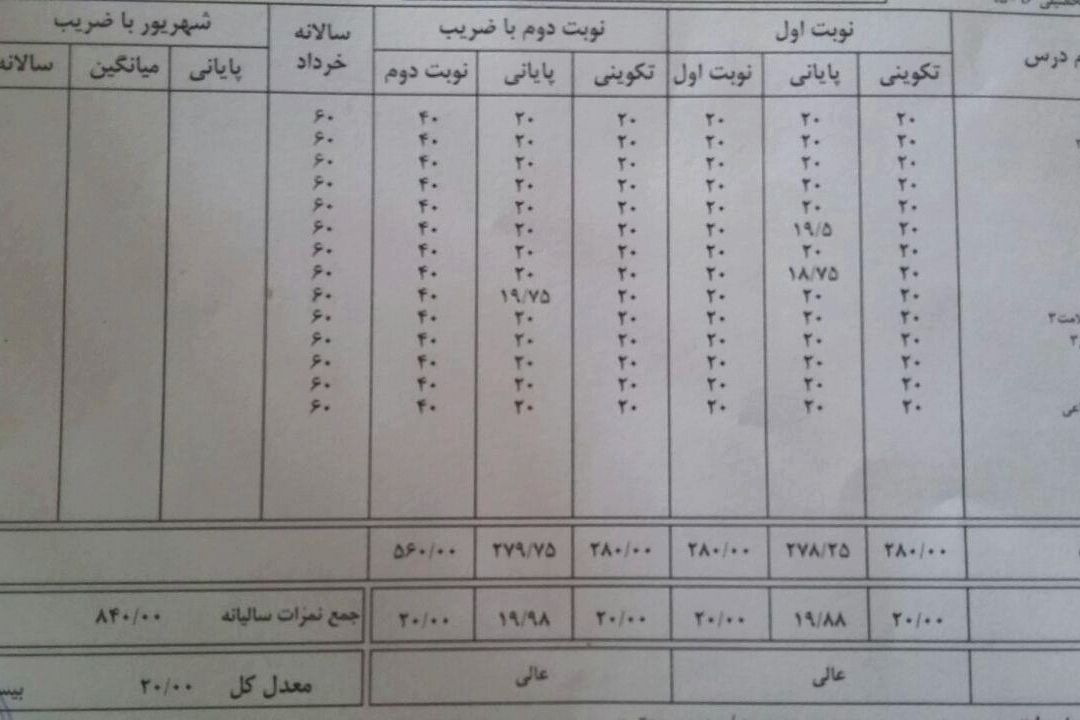 نوبت اول نوبت دوم با ضریب سالانه خرداد شهریور با ضریب
درس تکوینی پایانی نوبت اول تکوینی پایانی نوبت دوم پایانی میانگین سالانه
۲۰ ۲۰ ۲۰ ۲۰ ۲۰ ۴۰ ۶۰
۲۰ ۲۰ ۲۰ ۲۰ ۲۰ ۴۰ ۶۰
۲۰ ۲۰ ۲۰ ۲۰ ۲۰ ۴۰ ۶۰
۲۰ ۲۰ ۲۰ ۲۰ ۲۰ ۴۰ ۶۰
۲۰ ۲۰ ۲۰ ۲۰ ۲۰ ۴۰ ۶۰
۲۰ ۱۹/۵ ۲۰ ۲۰ ۲۰ ۴۰ ۶۰
۲۰ ۲۰ ۲۰ ۲۰ ۲۰ ۴۰ ۶۰
۲۰ ۱۸/۷۵ ۲۰ ۲۰ ۲۰ ۴۰ ۶۰
۲۰ ۲۰ ۲۰ ۲۰ ۱۹/۷۵ ۴۰ ۶۰
۲۰ ۲۰ ۲۰ ۲۰ ۲۰ ۴۰ ۶۰
۲۰ ۲۰ ۲۰ ۲۰ ۲۰ ۴۰ ۶۰
۲۰ ۲۰ ۲۰ ۲۰ ۲۰ ۴۰ ۶۰
۲۰ ۲۰ ۲۰ ۲۰ ۲۰ ۴۰ ۶۰
۲۰ ۲۰ ۲۰ ۲۰ ۲۰ ۴۰ ۶۰
۲۸۰/۰۰ ۲۷۸/۲۵ ۲۸۰/۰۰ ۲۸۰/۰۰ ۲۷۹/۷۵ ۵۶۰/۰۰
۲۰/۰۰ ۱۹/۸۸ ۲۰/۰۰ ۲۰/۰۰ ۱۹/۹۸ ۲۰/۰۰ جمع نمرات سالیانه ۸۴۰/۰۰
عالی عالی معدل کل ۲۰/۰۰